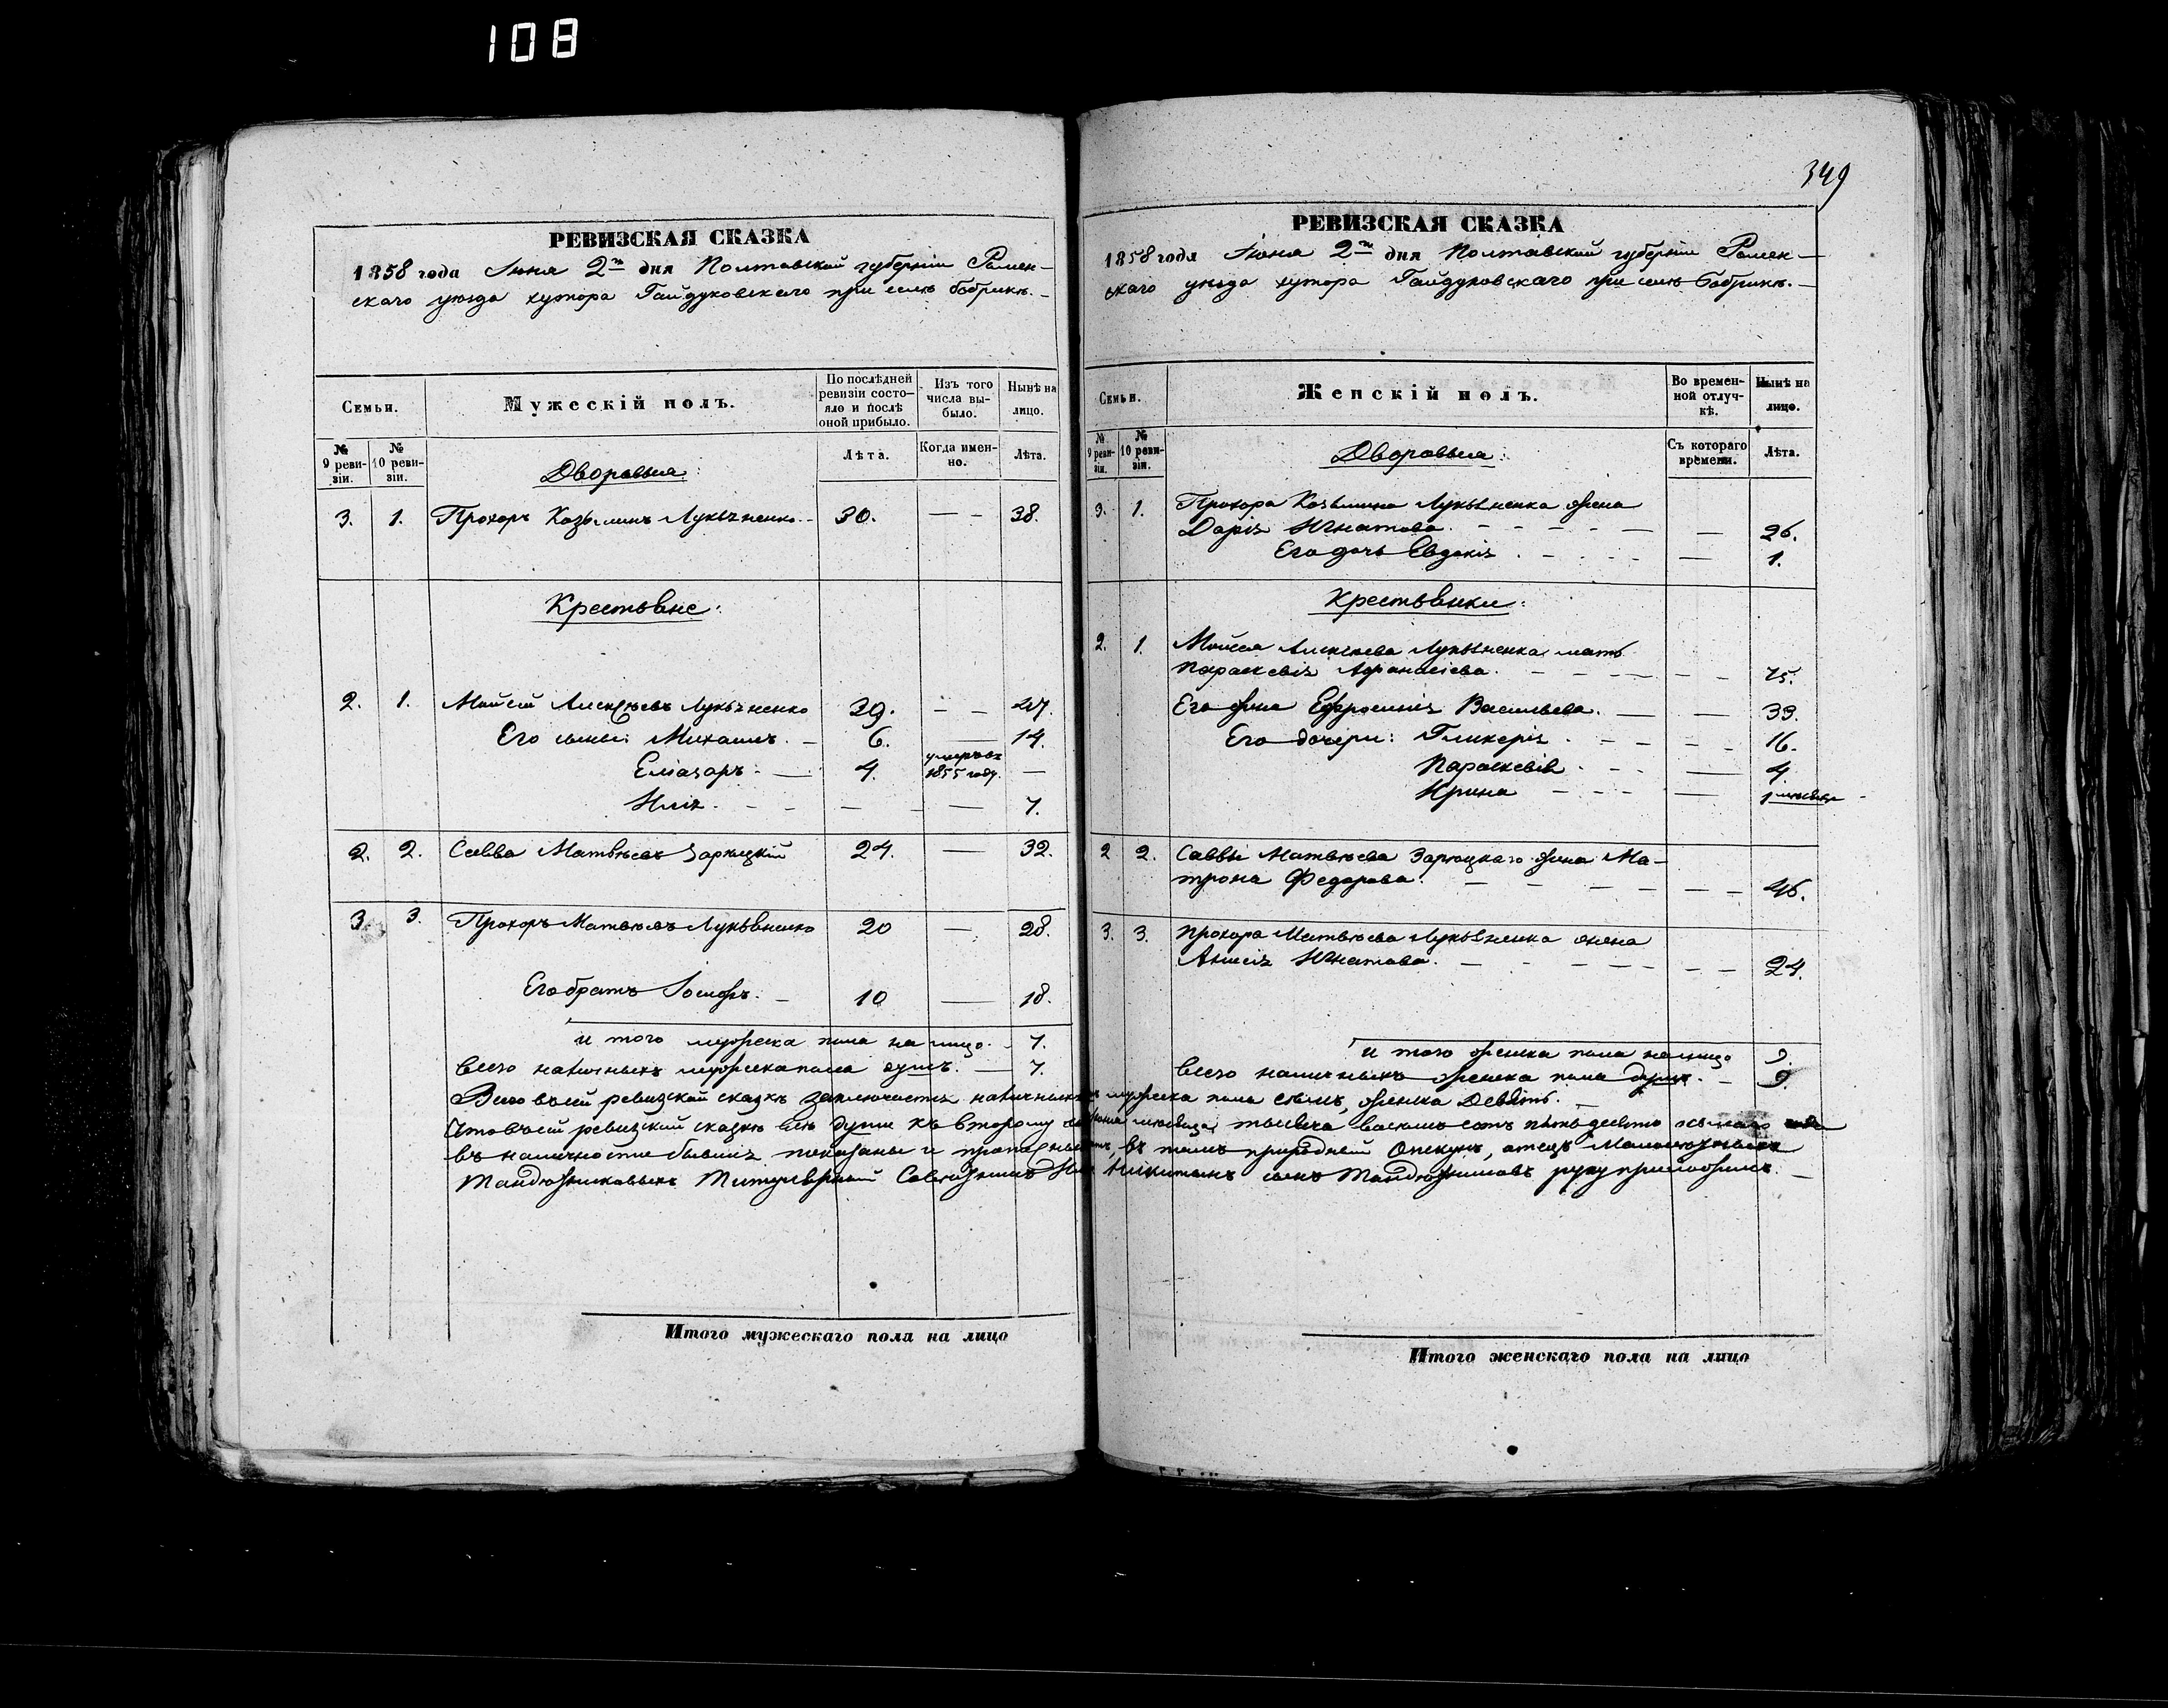 108
РЕВИЗСКАЯ СКАЗКА
1858 года Іюня 2го дня Полтавской губерніи Ромен-
скаго уѣзда хутора Гайдуковскаго при селѣ Бобрикѣ.
Семьи.
Мужескій полъ.
По послѣдней ревизіи состо-
яло и послѣ оной прибыло.
Изъ того числа вы-
было.
Нынѣ на лицо.
№ 9 реви-
зіи.
№ 10 реви-
зіи.
Лѣта.
Когда имен-
но.
Лѣта.
Дворовыя:
3. 1. Прохоръ Козьминъ Лукьяненко. 30. — — 38.
Крестьяне:
2. 1. Мойсей Алексѣевъ Лукьяненко 39. — — 47.
Его сыны: Михаилъ. — 6. — 14.
Еліазаръ. — 4. умеръ въ 1855 году. —
Илія. — — — — 7.
2. 2. Савва Матвѣевъ Зарецкій 24. — 32.
3. 3. Прохоръ Матвѣевъ Лукьяненко 20 — 28.
Его братъ Іосифъ. — 10 — 18.
и того мужеска пола на лицо. 7.
Всего наличныхъ мужеска пола душъ. — 7.
Итого мужескаго пола на лицо
349
РЕВИЗСКАЯ СКАЗКА
1858 года Іюня 2го дня Полтавской губерніи Ромен-
скаго уѣзда хутора Гайдуковскаго при селѣ Бобрикѣ.
Семьи.
Женскій полъ.
Во времен-
ной отлуч-
кѣ.
Нынѣ на лицо.
№ 9 реви-
зіи.
№ 10 реви-
зіи.
Съ котораго времени.
Лѣта.
Дворовыя:
3. 1. Прохора Козьмина Лукьяненка жена
Дарія Игнатова. — — — — — — 26.
Его дочь Евдокія. — — — — 1.
Крестьянки:
2. 1. Мойсея Алексѣева Лукьяненка мать
Параскевія Афанасіева. — — — — — — 75.
Его жена Ефросинія Васильева. — — 33.
Его дочери: Гликерія. — — — — 16.
Параскевія. — — — 4
Ирина — — — — 1 мѣсяца
2 2. Саввы Матвѣева Зарецкаго жена Ма-
трона Федорова. — — — — — — 46.
3. 3. Прохора Матвѣева Лукьяненка жена
Анисія Игнатова. — — — — — — — 24.
и того женска пола на лицо 9.
Всего наличныхъ женска пола душъ. — 9.
Всего въ сей ревизской сказкѣ заключается наличныхъ мужеска пола семь, женска девять. —
Что въ сей ревизской сказкѣ всѣ души къ второму Іюня мѣсяца тысяча восемь сотъ пятьдесятъ осьмаго года
въ наличности бывшія показаны и прописныхъ нѣтъ, въ томъ природный Опекунъ, отецъ
Титулярный Совѣтникъ Никитинъ сынъ руку приложилъ. —
Итого женскаго пола на лицо